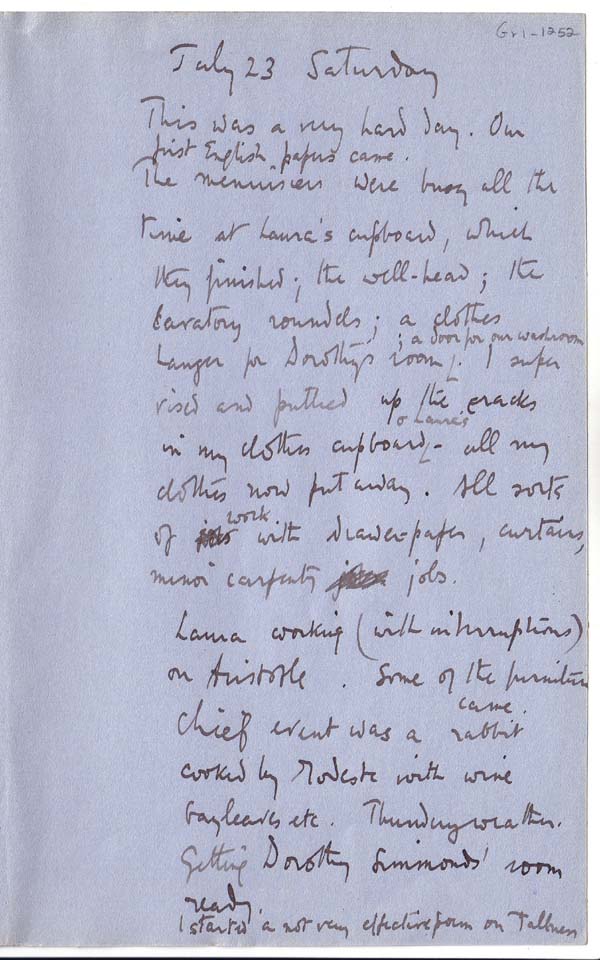 Gr1-1252
July 23 Saturday
This was a very hard day. Our
first English papers came.
The menuisiers were busy all the
time at Laura's cupboard, which
they finished; the well-head; the
lavatory roundels; a clothes
; a door for our washroom
hanger for Dorothy's room/. I super
vised and puttied up the cracks
o Laura's
in my clothes cupboard/- all my
clothes now put away. All sorts
work
of jobs with drawer-paper, curtains,
minor carpentry jobs.
Laura working (with interruptions)
on Aristotle. Some of the furniture
came.
Chief event was a rabbit
cooked by Modeste with wine
bayleaves etc. Thundery weather.
Getting Dorothy Simmonds' room
ready.
I started a not very effective poem on Tallness